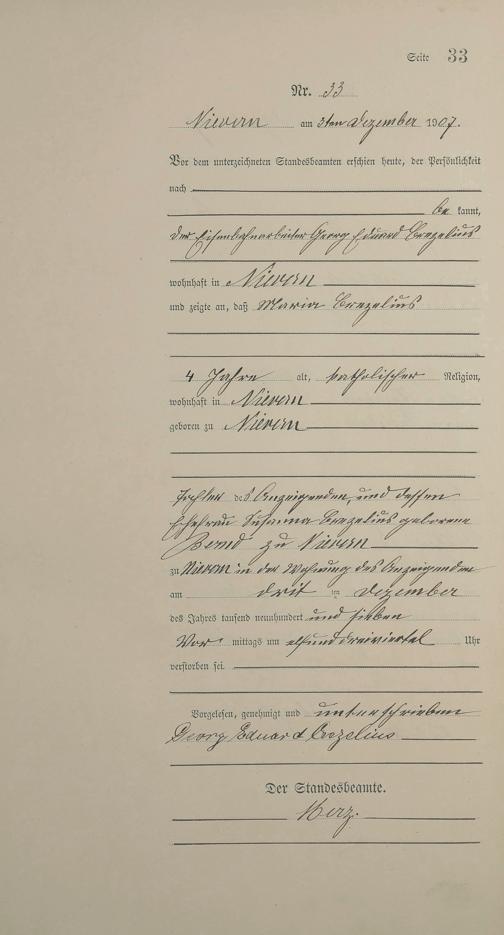 Seite 33
Nr. 33
Nievern am 3ten Dezember 1907.
Vor dem unterzeichneten Standesbeamten erschien heute, der Persönlichkeit
nach
be kannt,
der Eisenbahnarbeiter Georg Eduard Crezelius
wohnhaft in Nievern
und zeigte an, daß Maria Crezelius
4 Jahre alt, katholischer Religion,
wohnhaft in Nievern
geboren zu Nievern
Tochter des Anzeigenden, und dessen
Ehefrau Susanna Crezelius geborene
zu Nievern
zu Nievern in der Wohnung des Anzeigenden
am drit im Dezember
des Jahres tausend neunhundert und sieben
Vor mittags um elfunddreiviertel Uhr
verstorben sei.
Vorgelesen, genehmigt und unterschrieben
Georg Eduard Crezelius
Der Standesbeamte.
Merz.